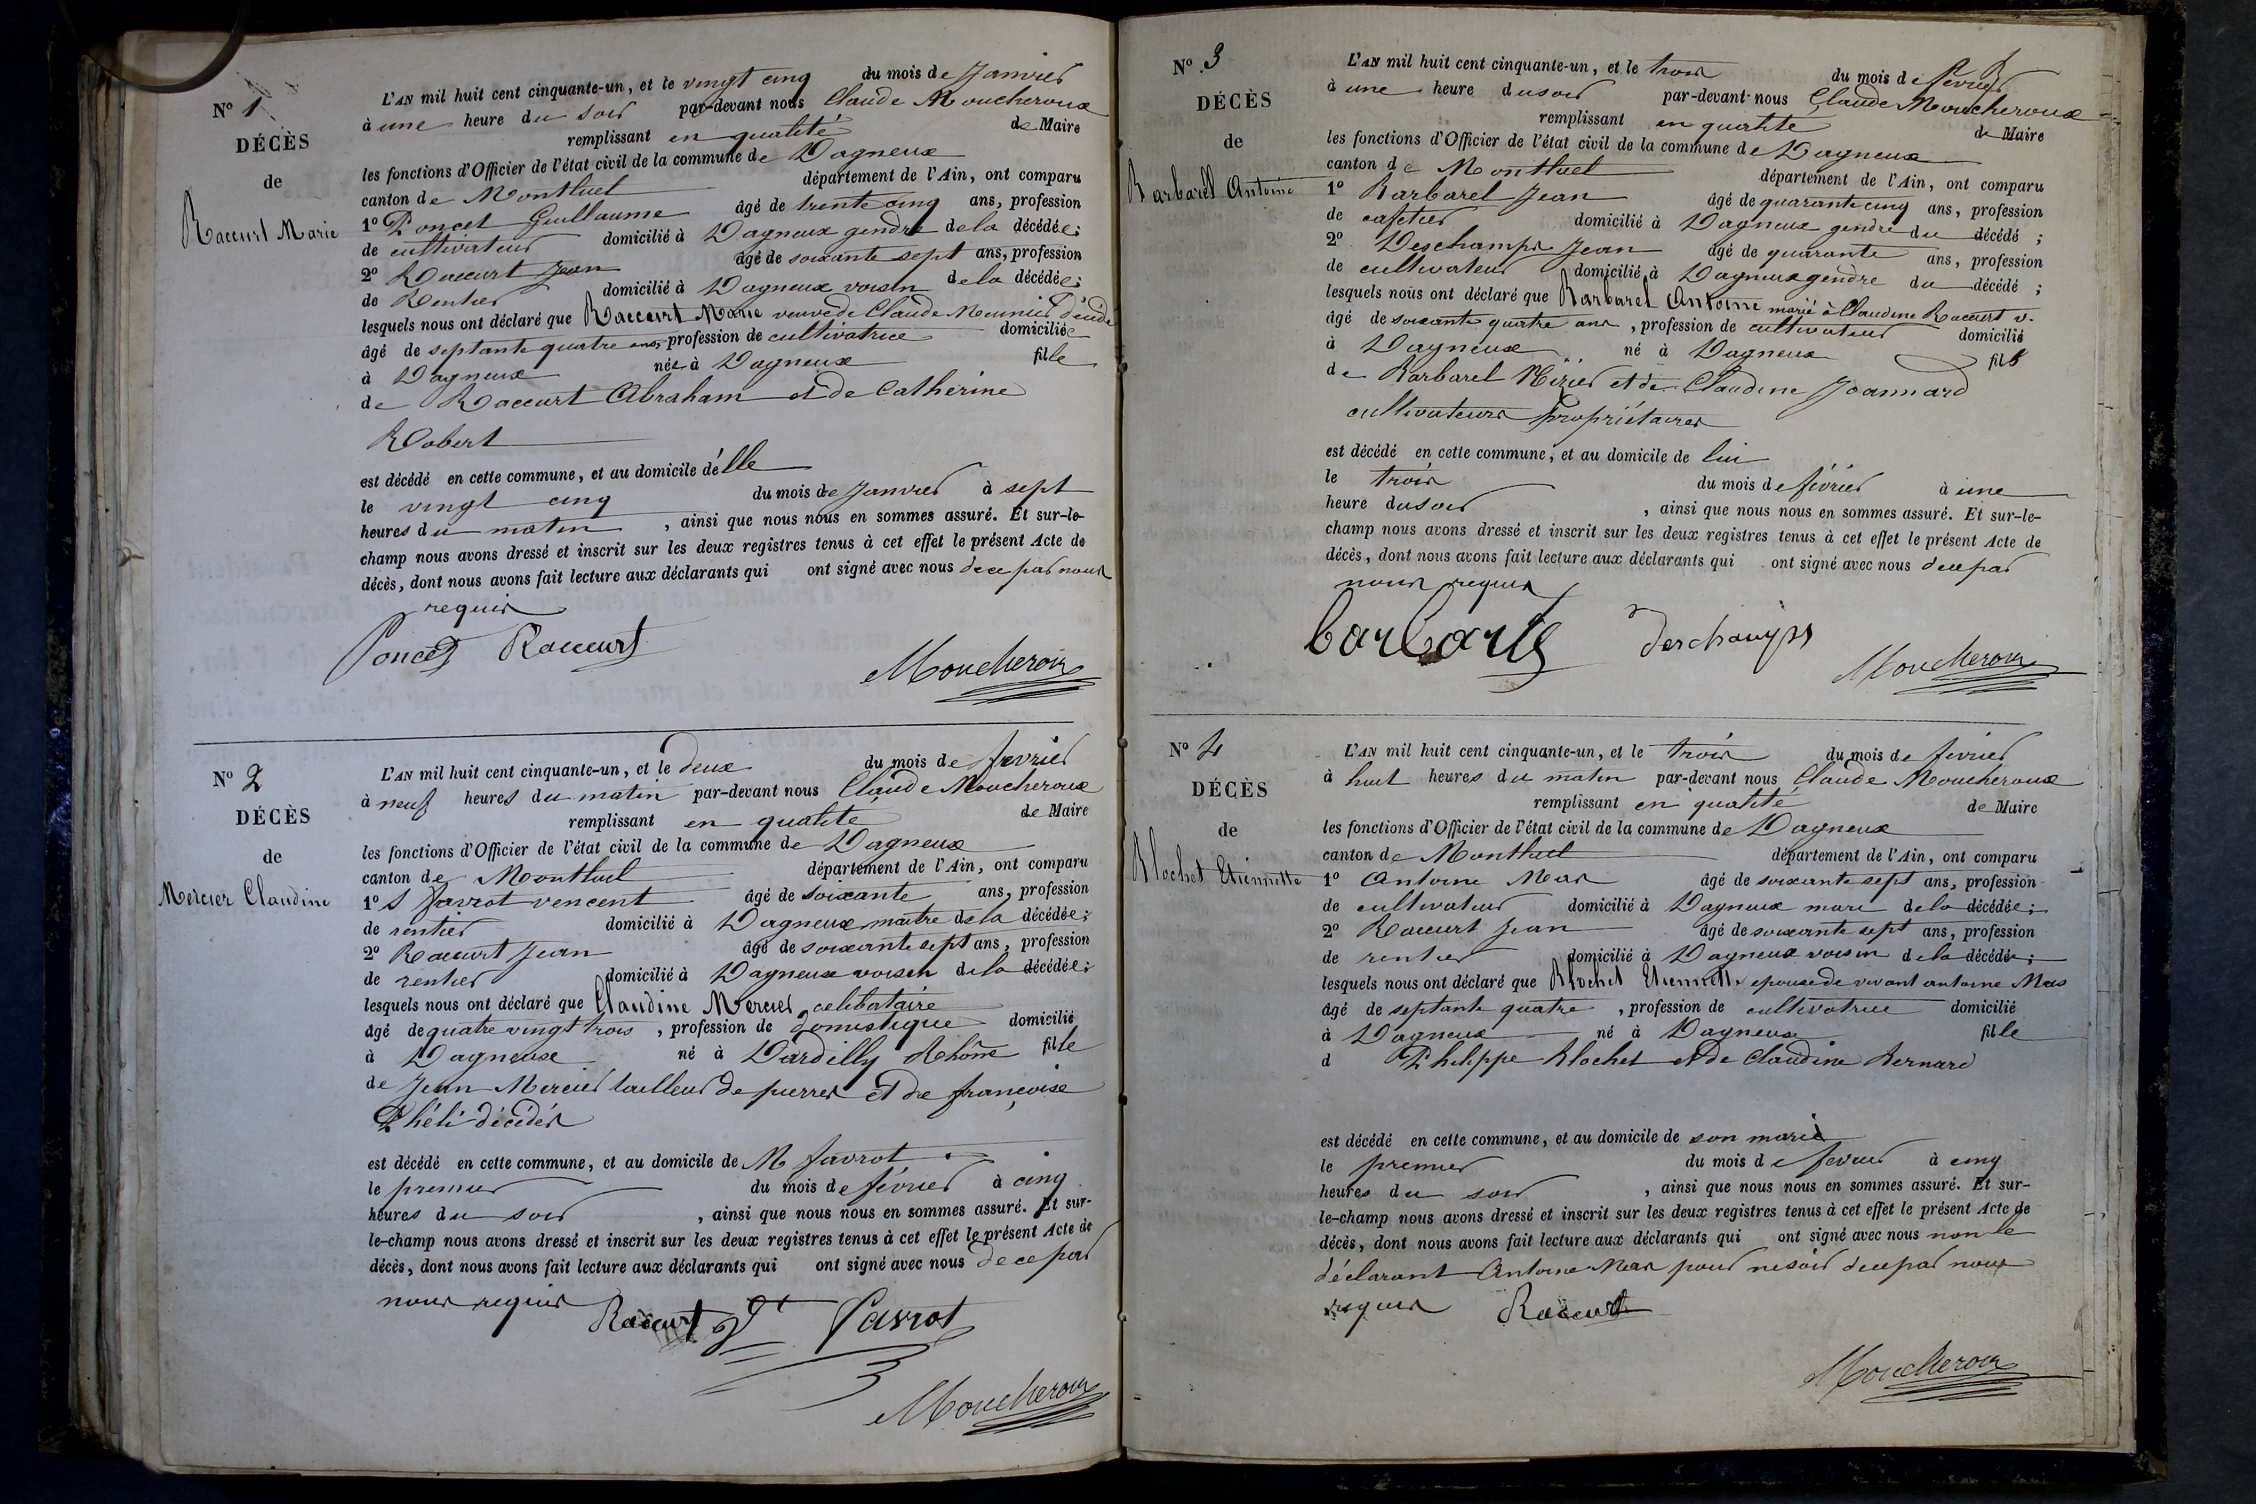 N° 1
DÉCÈS
de
Raccurt Marie
L'AN mil huit cent cinquante-un, et le vingt cinq du mois de Janvier
à une heure du soir par-devant nous Claude Moucheroux
remplissant en qualité de Maire
les fonctions d'Officier de l'état civil de la commune de Dagneux
canton de Montluel département de l'Ain, ont comparu
1° Poncet Guillaume âgé de trente cinq ans, profession
de cultivateur domicilié à Dagneux gendre de la décédée;
2° Raccurt Jean âgé de soixante sept ans, profession
de Rentier domicilié à Dagneux voisin de la décédée;
lesquels nous ont déclaré que Raccurt Marie veuve de Claude Meunier
âgé de septante quatre ans, profession de cultivatrice domiciliée
à Dagneux née à Dagneux fille
de Raccurt Abraham et de Catherine
Robert
est décédé en cette commune, et au domicile d'elle
le vingt cinq du mois de Janvier à sept
heures du matin, ainsi que nous nous en sommes assuré. Et sur-le-
champ nous avons dressé et inscrit sur les deux registres tenus à cet effet le présent Acte de
décès, dont nous avons fait lecture aux déclarants qui ont signé avec nous de ce par nous
requis
Poncet Raccurt
Moucheroux
N° 2
DÉCÈS
de
Mercier Claudine
L'AN mil huit cent cinquante-un, et le deux du mois de fevrier
à neuf heures du matin par-devant nous Claude Moucheroux
remplissant en qualité de Maire
les fonctions d'Officier de l'état civil de la commune de Dagneux
canton de Montluel département de l'Ain, ont comparu
1° S favrot vencent âgé de soixante ans, profession
de rentier domicilié à Dagneux maitre de la décédée;
2° Raccurt Jean âgé de soixante sept ans, profession
de rentier domicilié à Dagneux voisin de la décédée;
lesquels nous ont déclaré que Claudine Mercier celibataire
âgé de quatre vingt trois, profession de domestique domicilié
à Dagneux né à Dardilly Rhône fille
de Jean Mercier tailleur de pierres et de françoise
Phéli décédés
est décédé en cette commune, et au domicile de M favrot
le premier du mois de février à cinq
heures du soir, ainsi que nous nous en sommes assuré. Et sur-
le-champ nous avons dressé et inscrit sur les deux registres tenus à cet effet le présent Acte de
décès, dont nous avons fait lecture aux déclarants qui ont signé avec nous de ce par
nous requis
Raccurt Favrot
Moucheroux
N° 3
DÉCÈS
de
Barbarel Antoine
L'AN mil huit cent cinquante-un, et le trois du mois de fevrier
à une heure du soir par-devant nous Claude Moucheroux
remplissant en qualité de Maire
les fonctions d'Officier de l'état civil de la commune de Dagneux
canton de Montluel département de l'Ain, ont comparu
1° Barbarel Jean âgé de quarante cinq ans, profession
de cafetier domicilié à Dagneux gendre du décédé;
2° Deschamps Jean âgé de quarante ans, profession
de cultivateur domicilié à Dagneux gendre du décédé;
lesquels nous ont déclaré que Barbarel Antoine marié à Claudine Raccurt v.
âgé de soixante quatre ans, profession de cultivateur domicilié
à Dagneux né à Dagneux fils
de Barbarel Nizier et de Claudine Joannard
cultivateurs propriétaires
est décédé en cette commune, et au domicile de lui
le trois du mois de février à une
heure du soir, ainsi que nous nous en sommes assuré. Et sur-le-
champ nous avons dressé et inscrit sur les deux registres tenus à cet effet le présent Acte de
décès, dont nous avons fait lecture aux déclarants qui ont signé avec nous de ce par
nous requis
deschamps
Moucheroux
N° 4
DÉCÈS
de
Blochet Etiennette
L'AN mil huit cent cinquante-un, et le trois du mois de fevrier
à huit heures du matin par-devant nous Claude Moucheroux
remplissant en qualité de Maire
les fonctions d'Officier de l'état civil de la commune de Dagneux
canton de Montluel département de l'Ain, ont comparu
1° Antoine Mas âgé de soixante sept ans, profession
de cultivateur domicilié à Dagneux mari de la décédée;
2° Raccurt Jean âgé de soixante sept ans, profession
de rentier domicilié à Dagneux voisin de la décédée;
lesquels nous ont déclaré que Blochet Etiennette epouse de vivant antoine Mas
âgé de septante quatre, profession de cultivatrice domicilié
à Dagneux né à Dagneux fille
d Philippe Blochet et de Claudine Bernard
est décédé en cette commune, et au domicile de son marié
le premier du mois de fevrier à cinq
heures du soir, ainsi que nous nous en sommes assuré. Et sur-
le-champ nous avons dressé et inscrit sur les deux registres tenus à cet effet le présent Acte de
décès, dont nous avons fait lecture aux déclarants qui ont signé avec nous non le
déclarant Antoine Mas pour ne savoir de ce par nous
requis Raccurt
Moucheroux